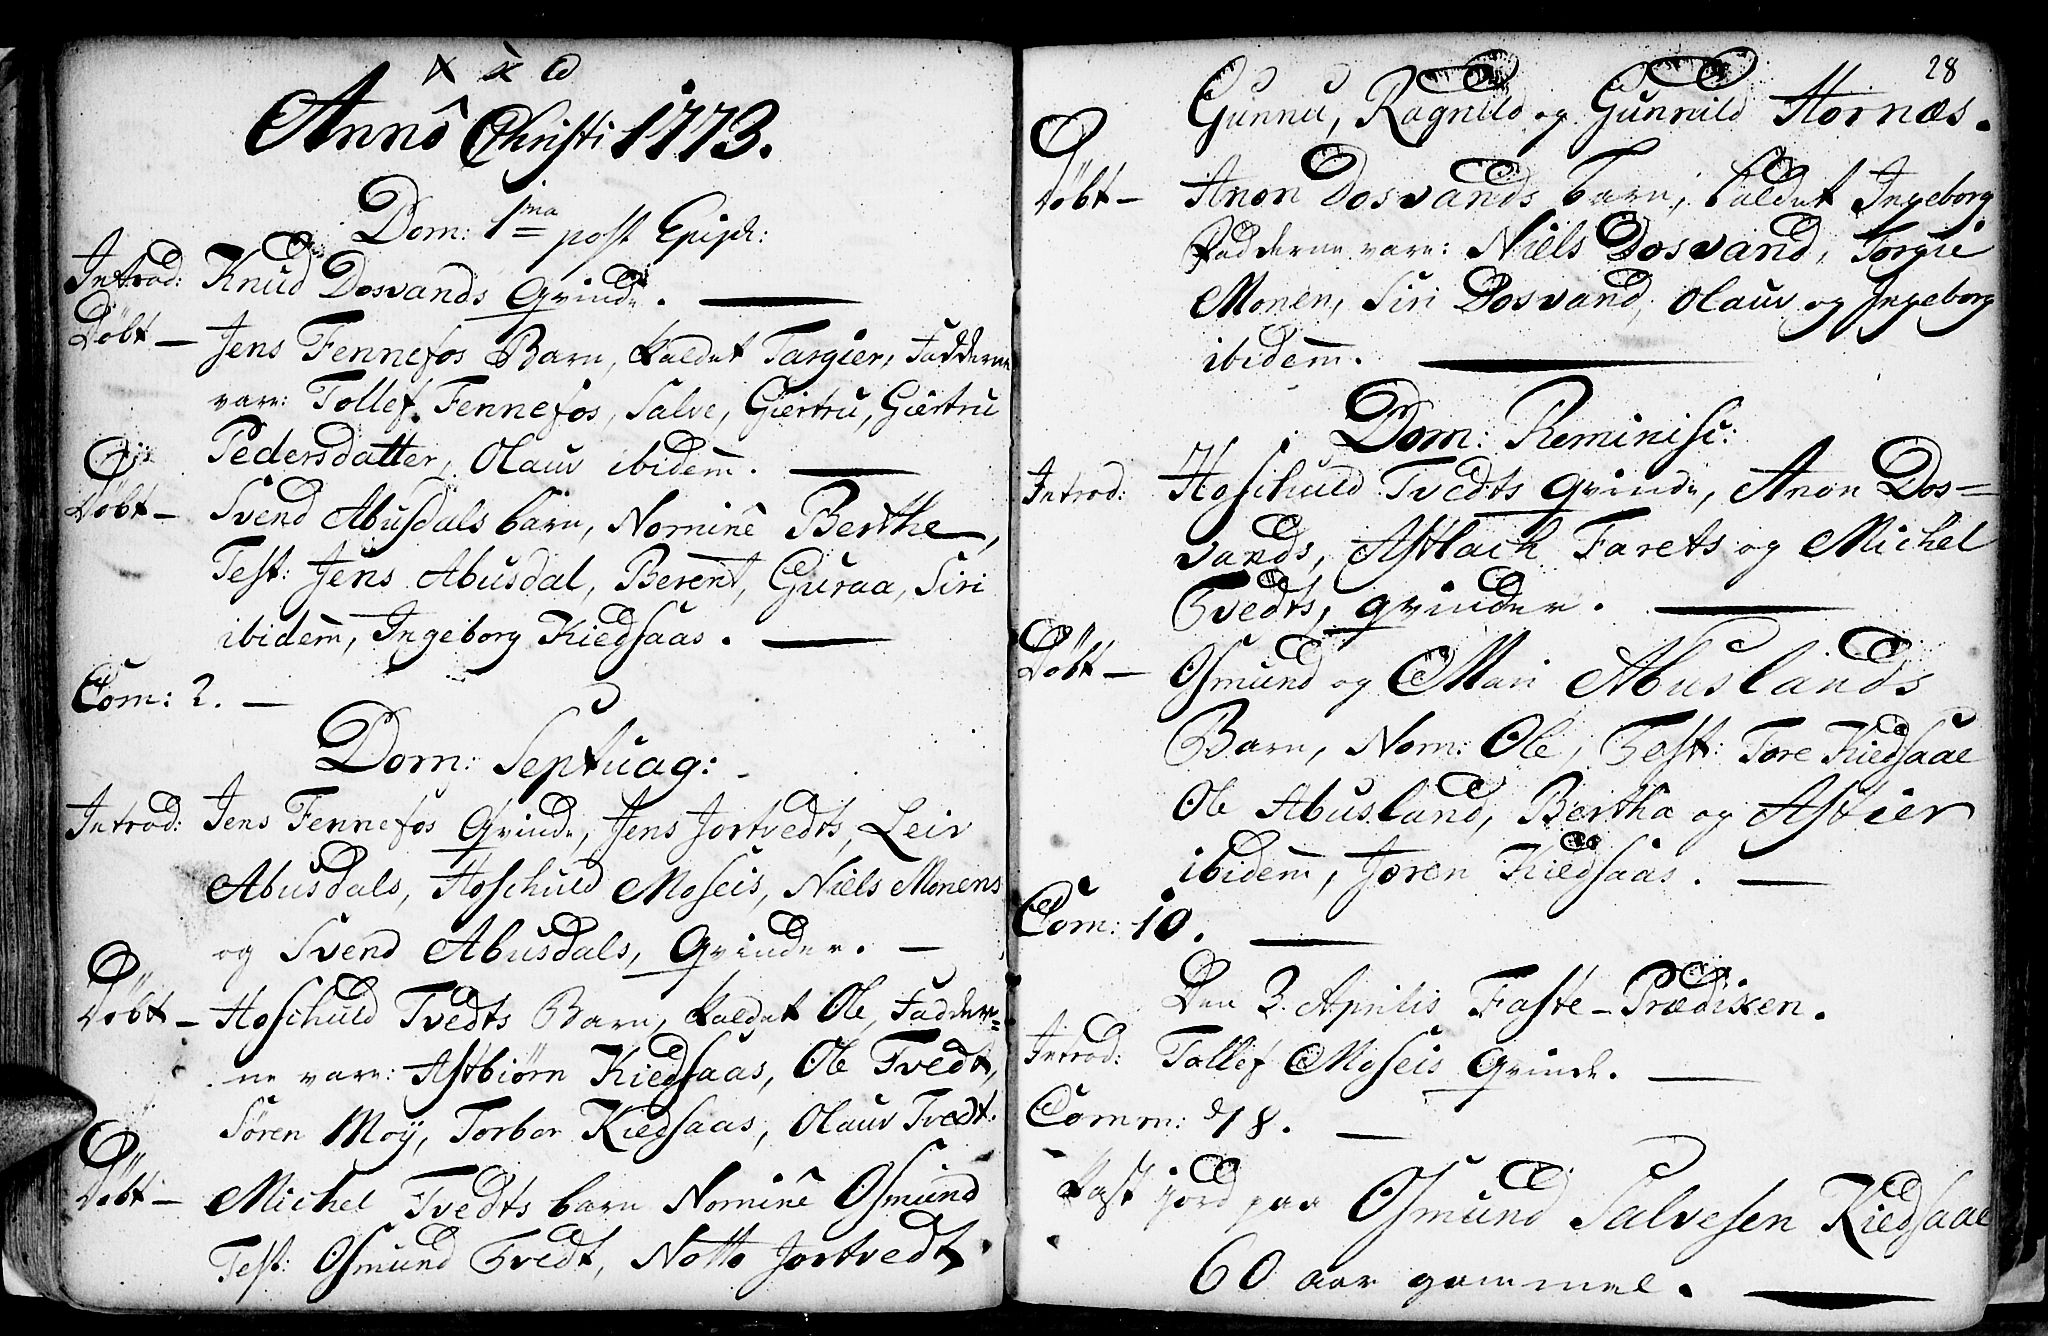 Annô Christi 1773.
Dom: 1ma post Epiph:
Introd: Knud Dosvands Qvinde.
Døbt — Jens Fennefos Barn, kaldet Targier, Fadderne
vare: Tollef Fennefos, Salve, Giertru, Giertru
Pedersdatter, Olauv ibidem.
Døbt — Svend Abusdals barn, Nominê Berthe,
Test: Jens Abusdal, Berent, Guraa, Siri
ibidem, Ingeborg Kiedsaas.
Com: 2. —
Dom: Septuag:
Introd: Jens Fennefos Qvinde, Jens Jortvedts, Leiv
Abusdals, Hoschuld Moseis, Niels Monens
og Svend Abusdals, Qvinder. —
Døbt — Hoschuld Tvedts Barn, kaldet Ole, Fadder=
ne vare: Astbiørn Kiedsaas, Ole Tvedt,
Søren Moÿ, Torbor Kiedsaas, Olauv Tvedt.
Døbt — Michel Tvedts barn Nominê Osmund
Test: Osmund Tvedt, Notto Jortvedt,
28
Gunnu, Ragnild og Gunnild Hornæs.
Døbt — Anon Dosvands barn, kaldet Ingeborg
Fadderne vare: Niels Dosvand, Torgie
Monen, Siri Dosvand, Olauv og Ingeborg
ibidem.
Dom: Reminisc:
Introd: Hoschuld Tvedts Qvinde, Anon Dos=
vands, Astlach Farets og Michel
Tvedts, qvinder.
Døbt — Osmund og Mari Abuslands
Barn, Nom: Ole, Test: Tore Kiedsaae
Ole Abusland, Bertha og Astier
ibidem, Joren Kiedsaas. —
Com: 10.
Den 3. Aprilis Faste-Prædiken.
Introd: Tollef Moseis Qvinde. —
Comm: 18. —
Kast jord paa Osmund Salvesen Kiedsaae
60 aar gammel.